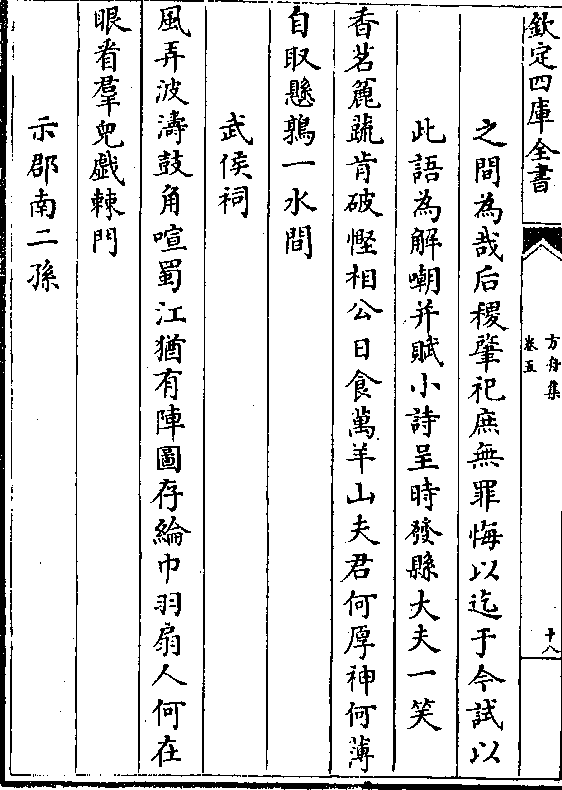 欽定四庫全書
方舟集
卷五
十八
之間為哉后稷肇祀庶無罪悔以迄于今試以
此語為解嘲并賦小詩呈時發縣大夫一笑
香茗麄蔬肯破慳相公日食萬羊山夫君何厚神何薄
自取懸鶉一水間
武侯祠
風弄波濤鼓角喧蜀江猶有陣圖存綸巾羽扇人何在
眼看羣兒戲棘門
示郡南二孫